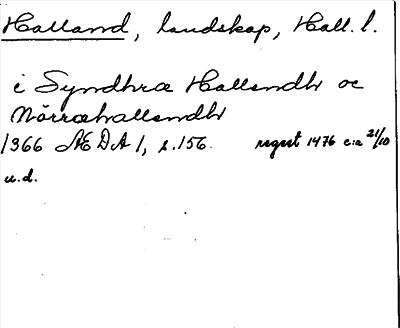 Halland, landskap, Hall. l.
i Syndhræ Hallandh oc
Nörræhallandh
1366 ÆDA 1, s. 156. regest 1476 c:a 21/10
u.d.